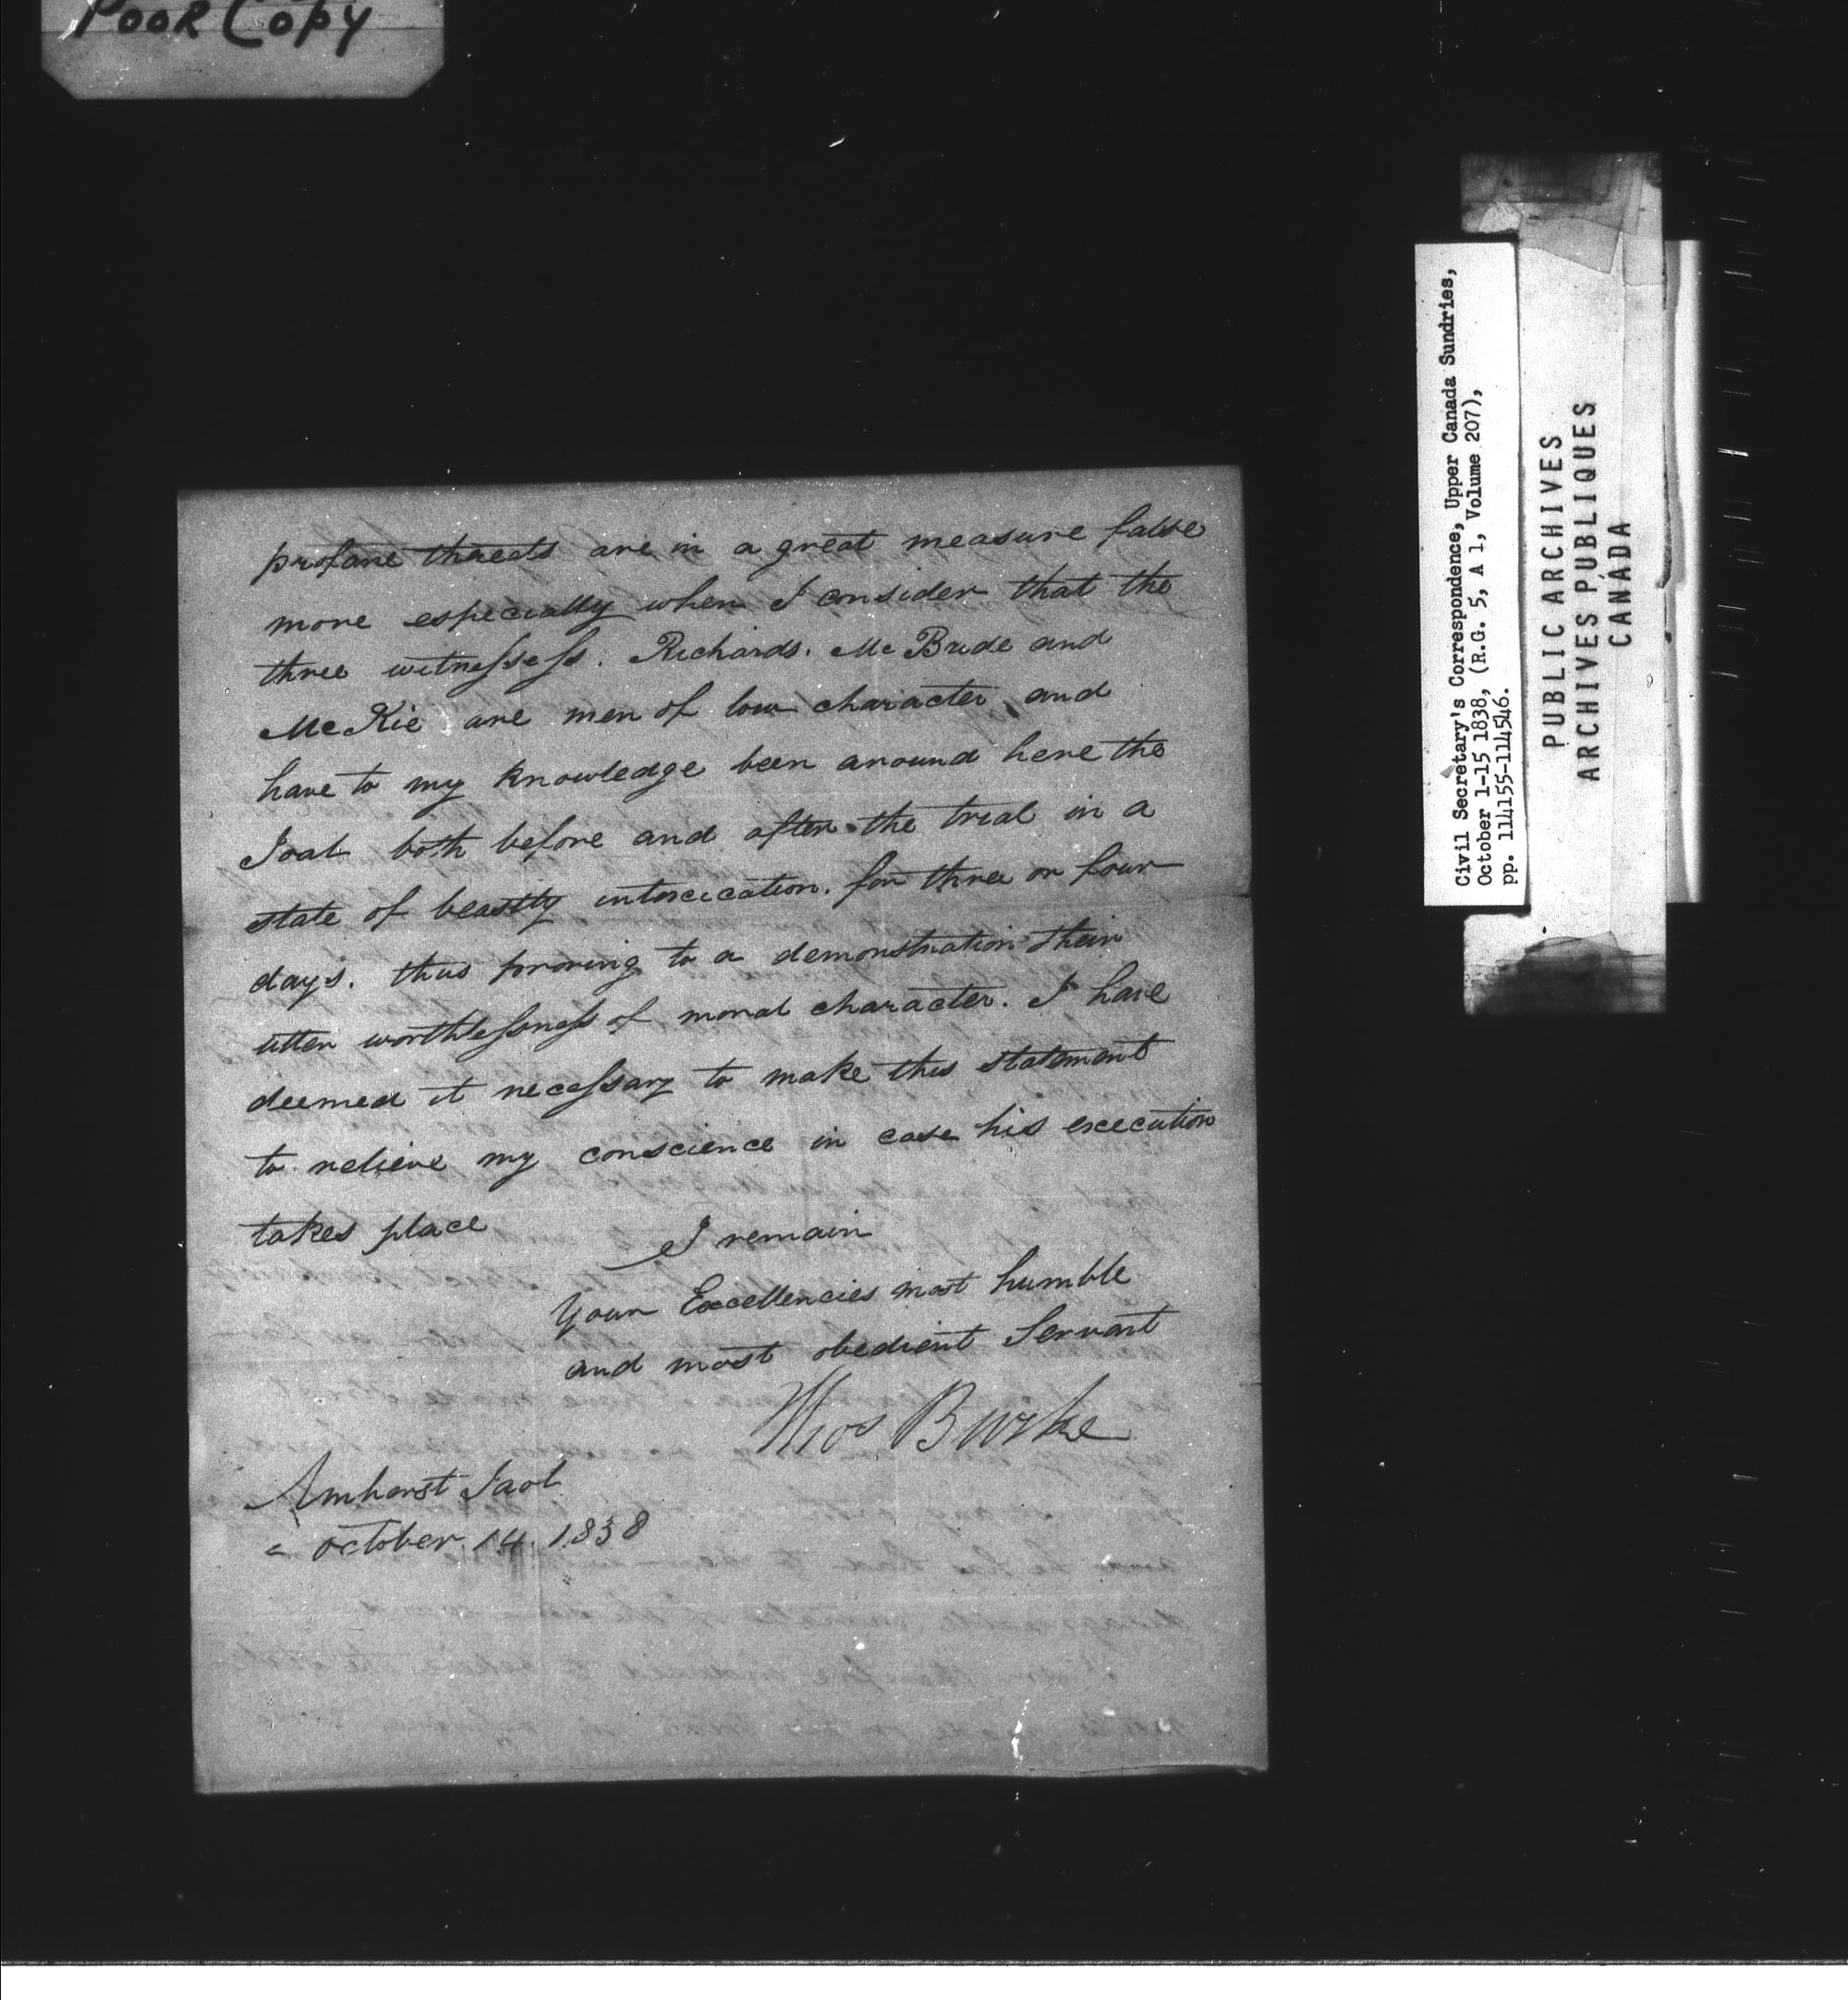 Poor Copy
profane threats are in a great measure false
more especially when I consider that the
three witnessess. Richards. Mc Bride and
Mc Kie are men of low character and
have to my knowledge been around here the
Joal both before and after the trial in a
state of beastly intoxcication. for three or four
days. thus proving to a demonstration their
utter worthlessness of moral character. I have
deemed it necessary to make this statement
to relieve my conscience in case his execution
takes place
I remain
Your Excellencies most humble
and most obedient Servant
Thos Burke
Amherst Jaol
October 14. 1838
Civil Secretary's Correspondence, Upper Canada Sundries,
October 1-15 1838, (R.G. 5, A 1, Volume 207),
pp. 114155-114546.
PUBLIC ARCHIVES
ARCHIVES PUBLIQUES
CANADA